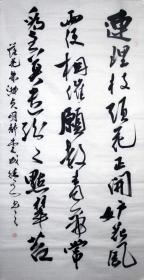 連理枝頭花正開妒花風
雨便相催願教青帝常
為主莫遣紛々點翠苔
落花朱淑貞